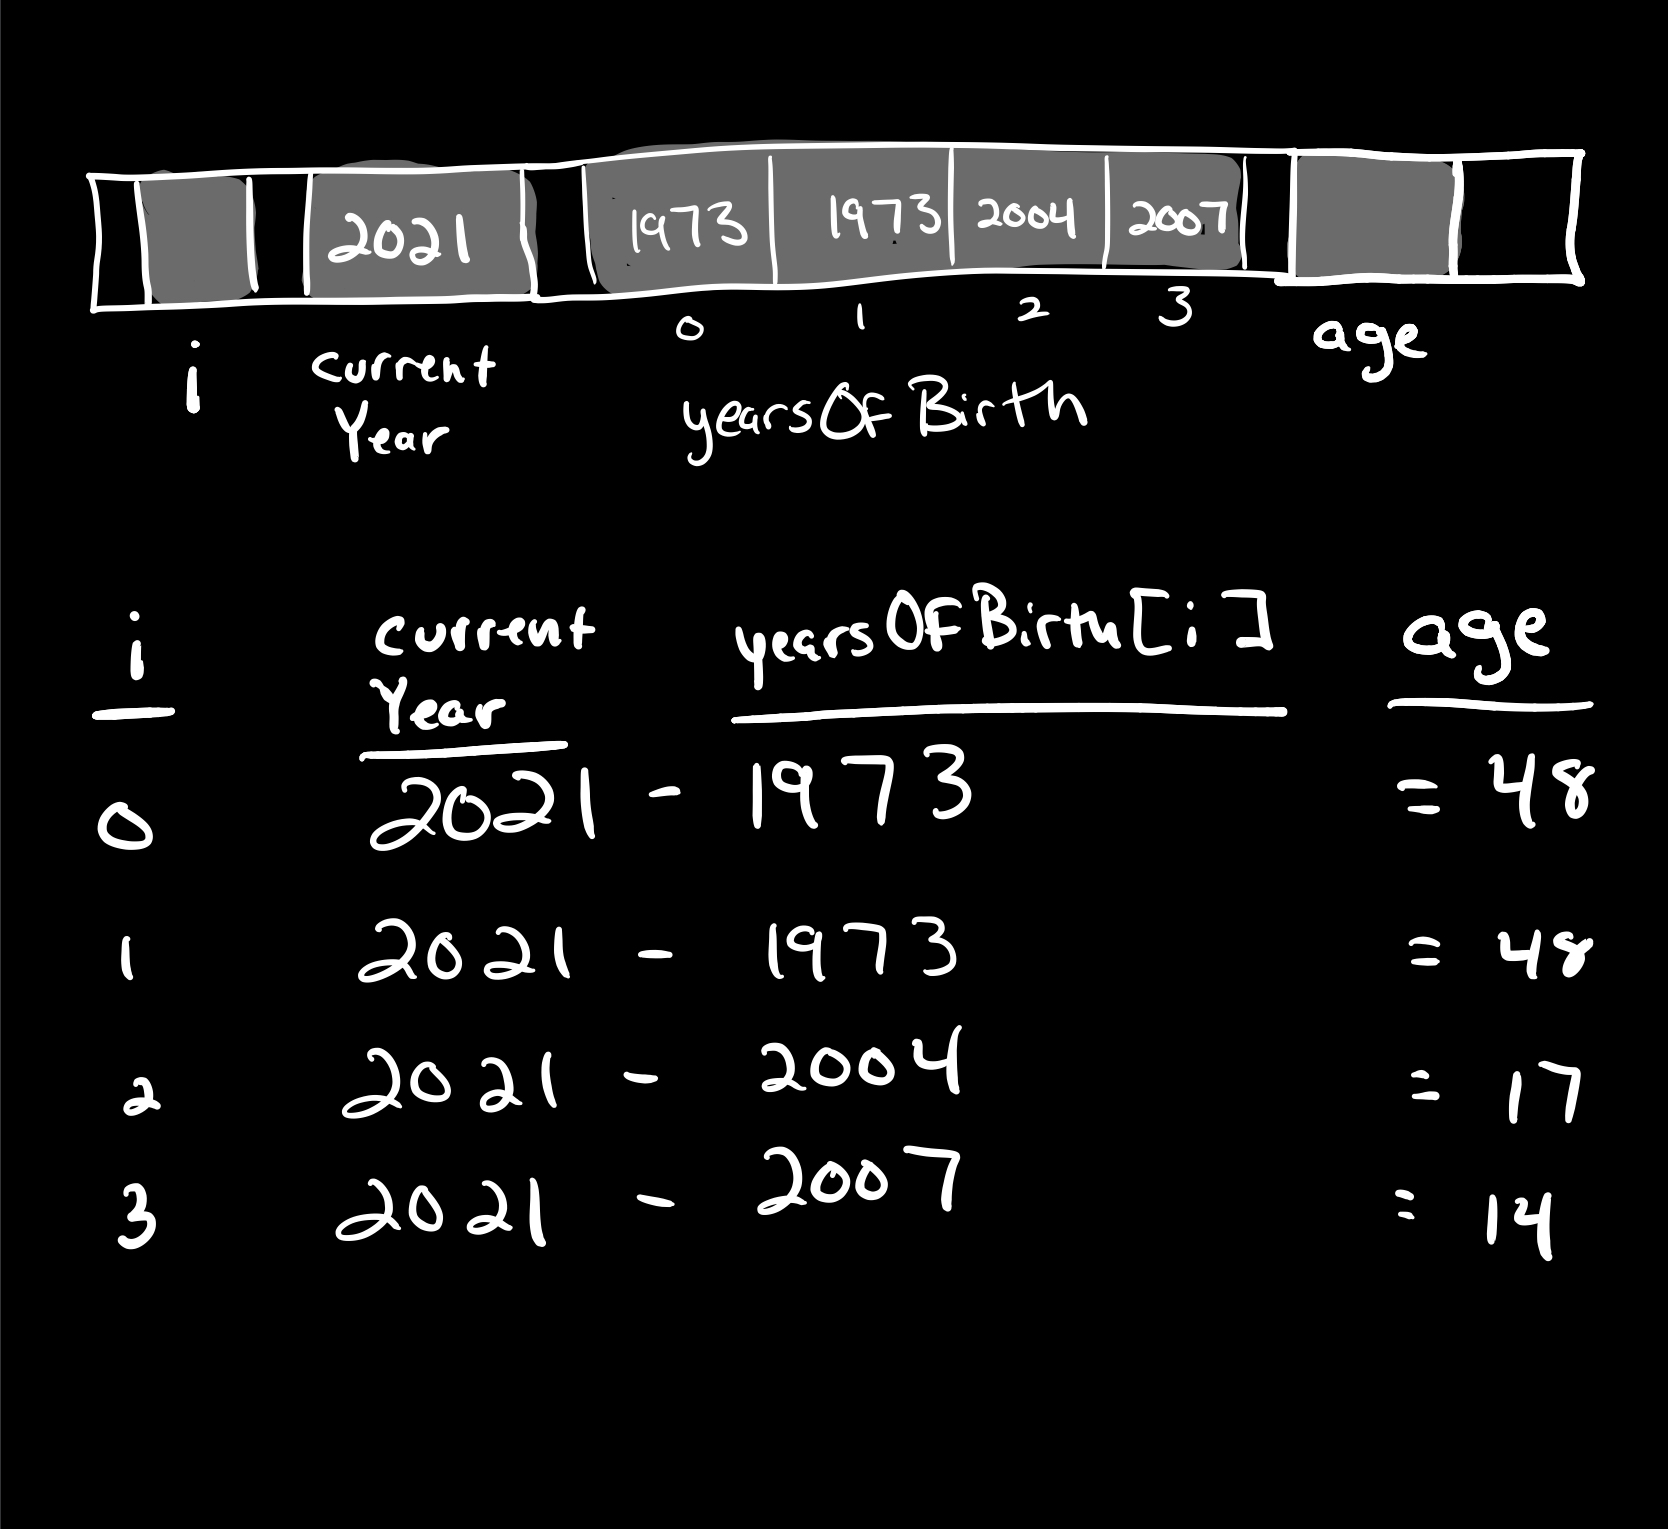 2021 1973 1973 2004 2007
0 1 2 3
i current Year yearsOfBirth age
i current Year yearsOfBirth[i] age
0 2021 - 1973 = 48
1 2021 - 1973 = 48
2 2021 - 2004 = 17
3 2021 - 2007 = 14